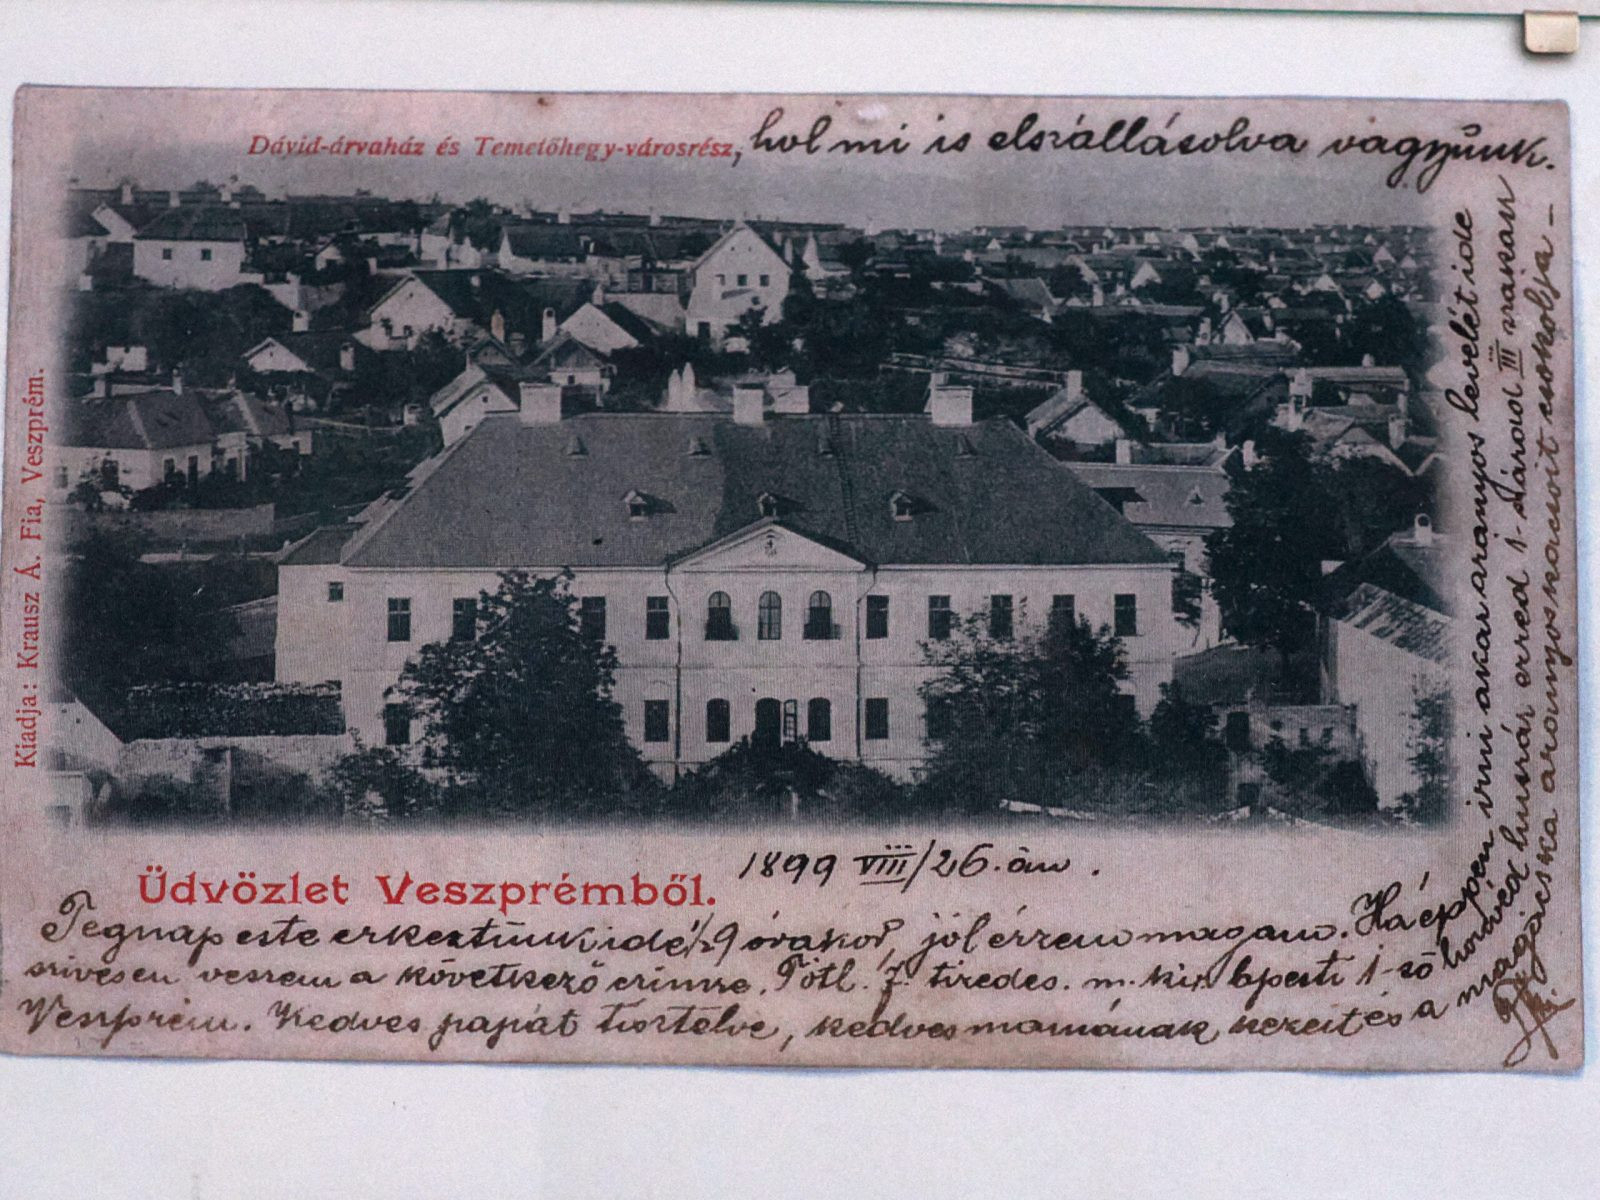 Dávid-árvaház és Temetőhegy-városrész, hol mi is elszállásolva vagyunk.
Kiadja: Krausz Á. Fia, Veszprém.
Üdvözlet Veszprémből.
1899 VIII/26.-án.
Tegnap este érkeztünk ide 1/2 9 órakor, jól érzem magam. Ha éppen írni akar aranyos levelét ide
szívesen veszem a következő címre. 7. tizedes. m. kir. bpesti 1-ső honvéd huszár ezred 1. század III szakasz
Veszprém. Kedves papát tisztelve, kedves mamának kezeit és a nagyácska aranyos kacsóit csókolja -